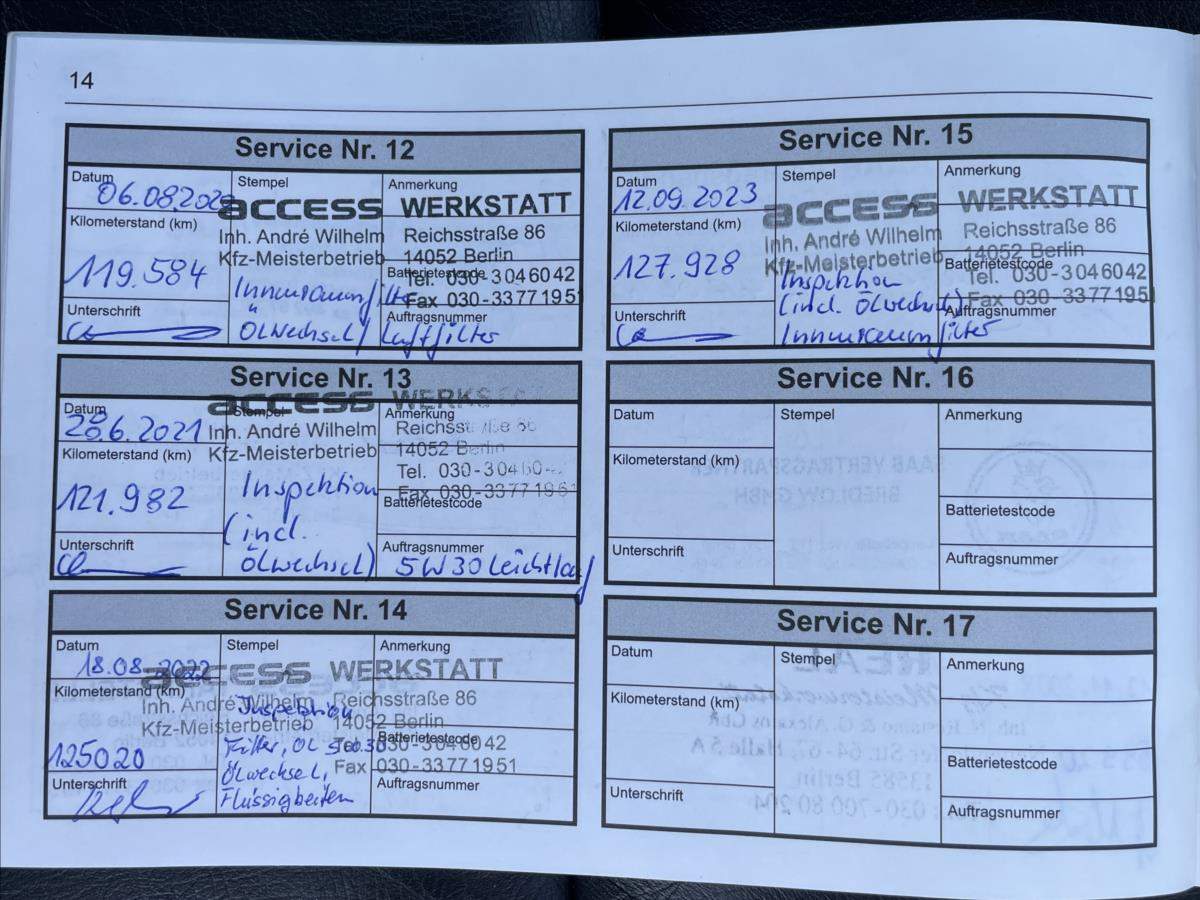 14
Service Nr. 12
Datum 06.08.202
Stempel
Anmerkung
access WERKSTATT
Kilometerstand (km)
Inh. André Wilhelm Reichsstraße 86
Kfz-Meisterbetrieb 14052 Berlin
119.584
Batterietestcode
Tel. 030-3046042
Innenraumfilter
Fax 030-33771951
Unterschrift
Auftragsnummer
Ölwechsel / Luftfilter
Service Nr. 13
access WERKS
Datum 28.6.2021
Stempel
Anmerkung
Inh. André Wilhelm Reichsstraße 86
Kilometerstand (km)
Kfz-Meisterbetrieb 14052 Berlin
Tel. 030-30460
121.982
Inspektion
Fax 030-33771951
Batterietestcode
(incl.
Unterschrift
Auftragsnummer
Ölwechsel) 5W30 Leichtlauf
Service Nr. 14
Datum 18.08.2022
Stempel
Anmerkung
access WERKSTATT
Kilometerstand (km)
Inh. André Wilhelm Reichsstraße 86
Inspektion
Kfz-Meisterbetrieb 14052 Berlin
Batterietestcode
125020
Filter, ÖL 5W30
Tel. 030-3046042
Fax 030-33771951
Ölwechsel,
Unterschrift
Auftragsnummer
Flüssigkeiten
Service Nr. 15
Datum 12.09.2023
Stempel
Anmerkung
access WERKSTATT
Kilometerstand (km)
Inh. André Wilhelm Reichsstraße 86
Kfz-Meisterbetrieb 14052 Berlin
127.928
Batterietestcode
Tel. 030-3046042
Inspektion
Fax 030-33771951
(incl. Ölwechsel)
Unterschrift
Auftragsnummer
Innenraumfilter
Service Nr. 16
Datum
Stempel
Anmerkung
Kilometerstand (km)
Batterietestcode
Unterschrift
Auftragsnummer
Service Nr. 17
Datum
Stempel
Anmerkung
Kilometerstand (km)
Batterietestcode
Unterschrift
Auftragsnummer